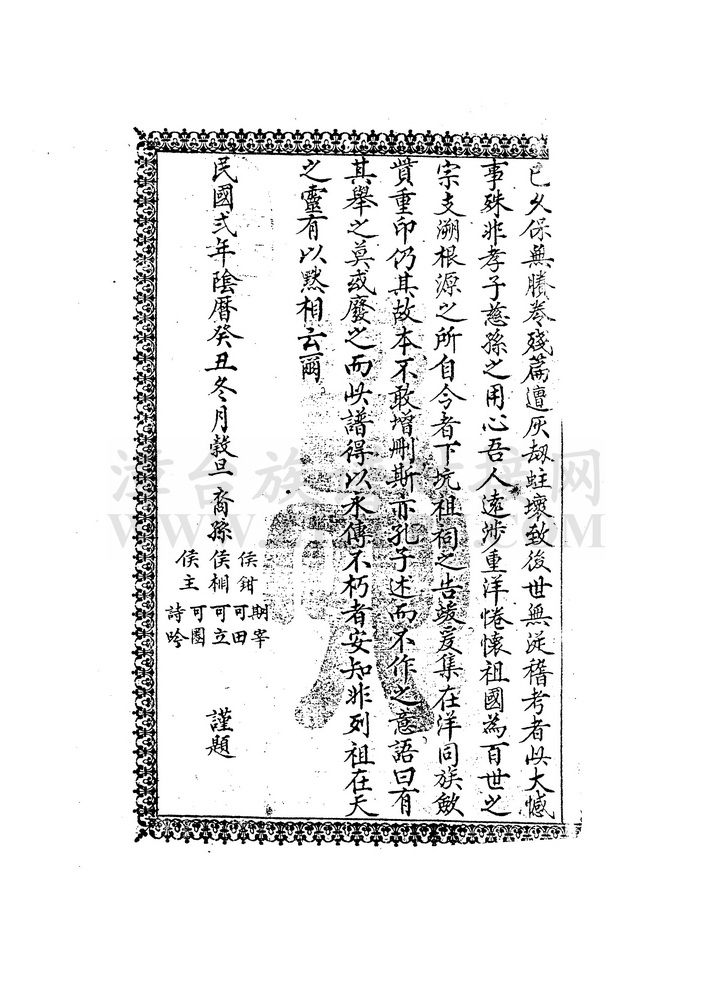 已久保無賸卷殘篇遭灰刼蛀壞致後世無從稽考者此大憾
事殊非孝子慈孫之用心吾人遠涉重洋惓懷祖國為百世之
宗支溯根源之所自今者下坑祖祠之告竣爰集在洋同族歛
貲重印仍其故本不敢增刪斯亦孔子述而不作之意語曰有
其舉之莫或廢之而此譜得以永傳不朽者安知非列祖在天
之靈有以默相云爾
民國弍年陰曆癸丑冬月穀旦裔孫
侯鉗 期宰
侯相 可田
侯主 可立
可園
詩吟
謹題
漳台族譜 网
WWW.